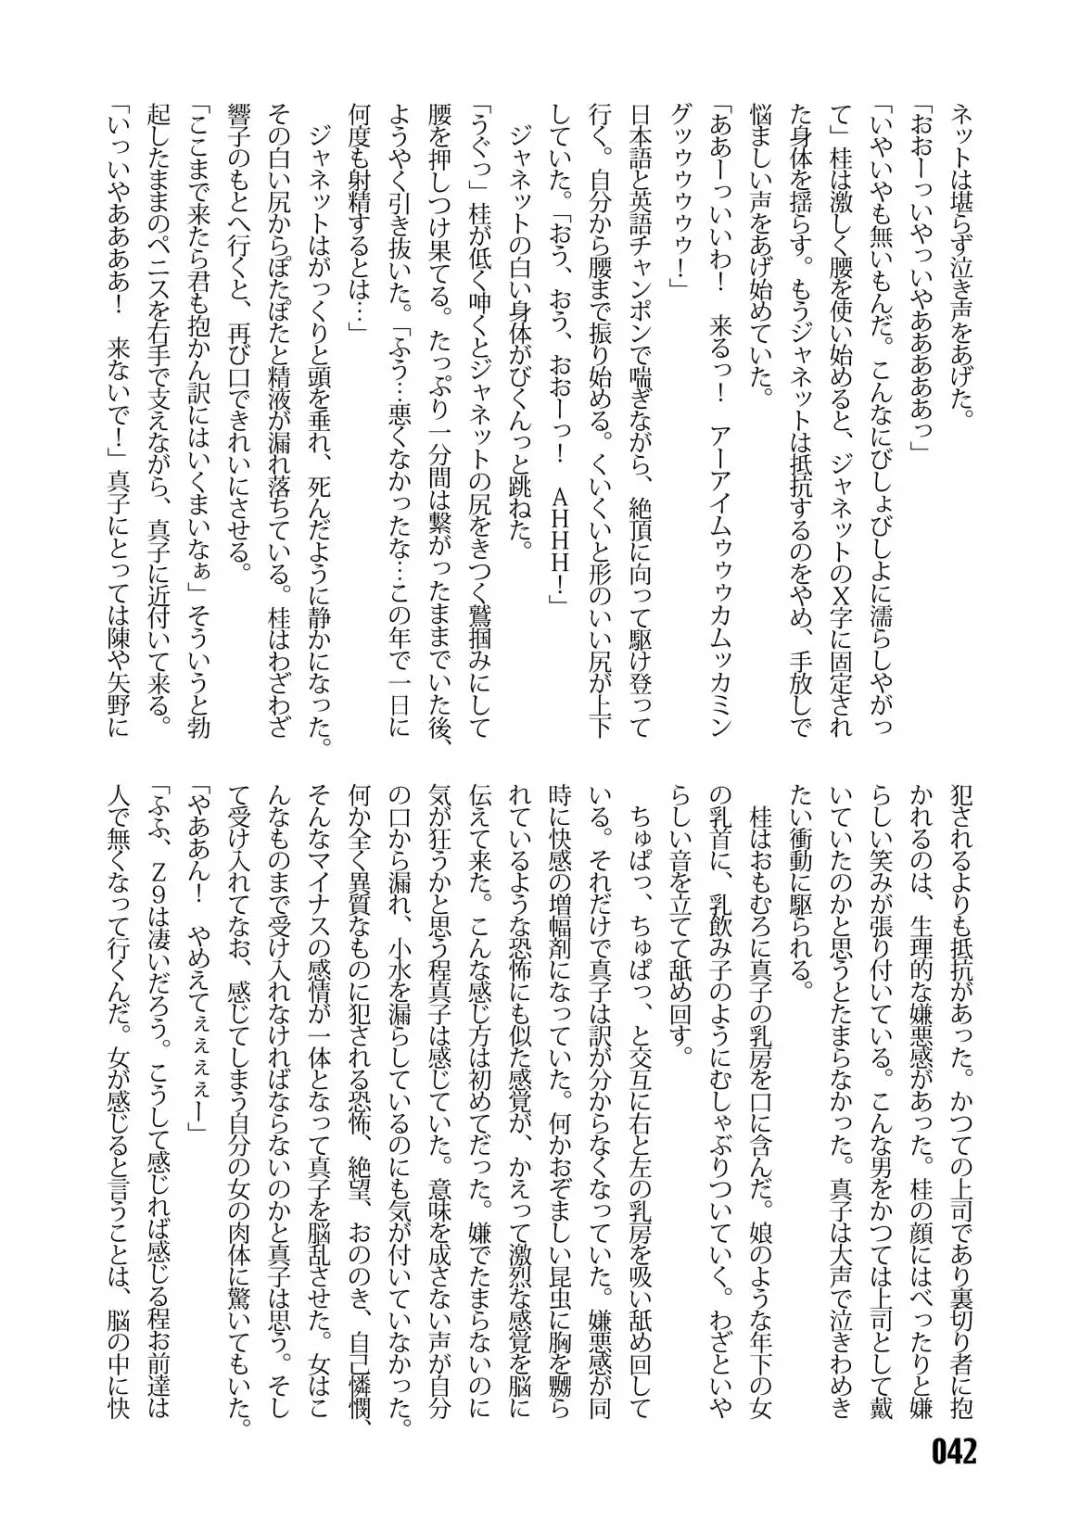 ネットは堪らず泣き声をあげた。
「おおーっいやっいやあああああっ」
「いやいやも無いもんだ。こんなにびしょびしよに濡らしやがっ
て」桂は激しく腰を使い始めると、ジャネットのX字に固定され
た身体を揺らす。もうジャネットは抵抗するのをやめ、手放しで
悩ましい声をあげ始めていた。
「ああーっいいわ！　来るっ！　アーアイムゥゥゥカムッカミン
グッゥゥゥゥゥ！」
日本語と英語チャンポンで喘ぎながら、絶頂に向って駆け登って
行く。自分から腰まで振り始める。くいくいと形のいい尻が上下
していた。「おう、おう、おおーっ！　AHHH！」
　ジャネットの白い身体がびくんっと跳ねた。
「うぐっ」桂が低く呻くとジャネットの尻をきつく鷲掴みにして
腰を押しつけ果てる。たっぷり一分間は繋がったままでいた後、
ようやく引き抜いた。「ふう…悪くなかったな…この年で一日に
何度も射精するとは…」
　ジャネットはがっくりと頭を垂れ、死んだように静かになった。
その白い尻からぽたぽたと精液が漏れ落ちている。桂はわざわざ
響子のもとへ行くと、再び口できれいにさせる。
「ここまで来たら君も抱かん訳にはいくまいなぁ」そういうと勃
起したままのペニスを右手で支えながら、真子に近付いて来る。
「いっいやああああ！　来ないで！」真子にとっては陳や矢野に
犯されるよりも抵抗があった。かつての上司であり裏切り者に抱
かれるのは、生理的な嫌悪感があった。桂の顔にはべったりと嫌
らしい笑みが張り付いている。こんな男をかつては上司として戴
いていたのかと思うとたまらなかった。真子は大声で泣きわめき
たい衝動に駆られる。
　桂はおもむろに真子の乳房を口に含んだ。娘のような年下の女
の乳首に、乳飲み子のようにむしゃぶりついていく。わざといや
らしい音を立てて舐め回す。
　ちゅぱっ、ちゅぱっ、と交互に右と左の乳房を吸い舐め回して
いる。それだけで真子は訳が分からなくなっていた。嫌悪感が同
時に快感の増幅剤になっていた。何かおぞましい昆虫に胸を嬲ら
れているような恐怖にも似た感覚が、かえって激烈な感覚を脳に
伝えて来た。こんな感じ方は初めてだった。嫌でたまらないのに
気が狂うかと思う程真子は感じていた。意味を成さない声が自分
の口から漏れ、小水を漏らしているのにも気が付いていなかった。
何か全く異質なものに犯される恐怖、絶望、おののき、自己憐憫、
そんなマイナスの感情が一体となって真子を脳乱させた。女はこ
んなものまで受け入れなければならないのかと真子は思う。そし
て受け入れてなお、感じてしまう自分の女の肉体に驚いてもいた。
「やああん！　やめえてぇぇぇぇー」
「ふふ、Z9は凄いだろう。こうして感じれば感じる程お前達は
人で無くなって行くんだ。女が感じると言うことは、脳の中に快
042